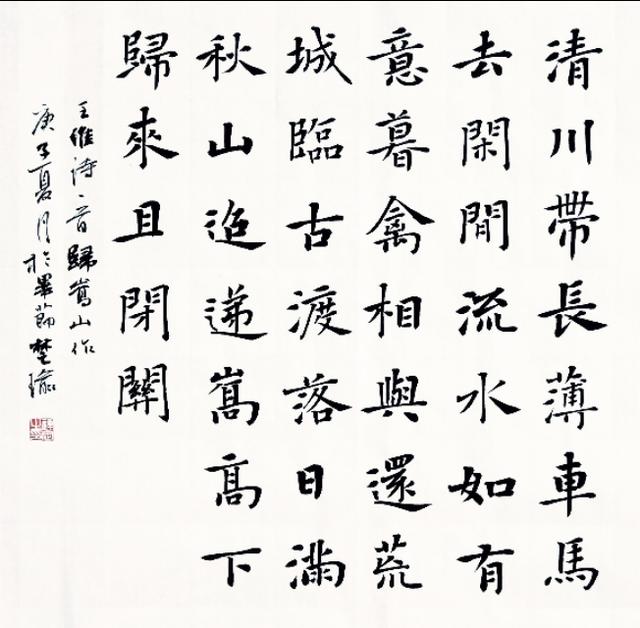 清川帶長薄車馬
去閑閒流水如有
意暮禽相與還荒
城臨古渡落日滿
秋山迢遞嵩高下
歸來且閉關
王維诗一首歸嵩山作
庚子夏月於畢節楚瑜